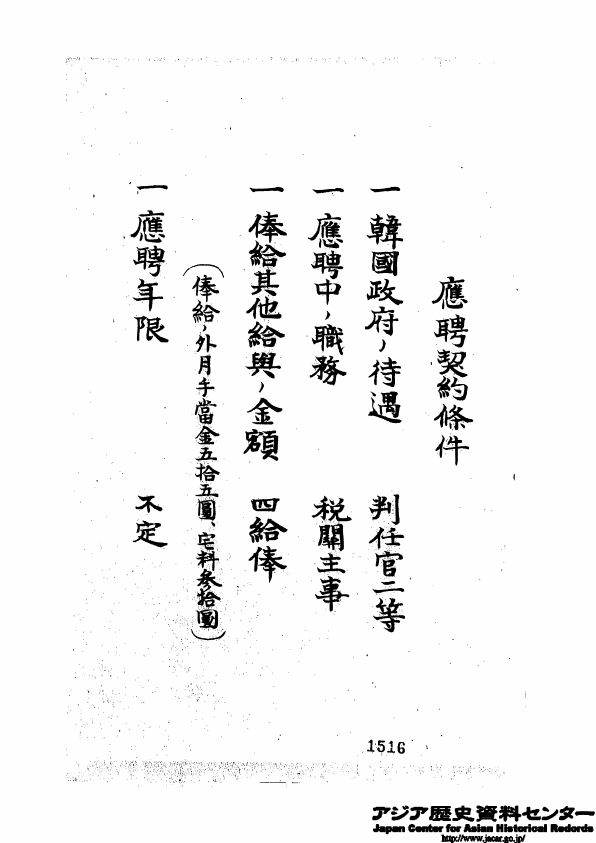 應聘契約條件
一 韓國政府ノ待遇 判任官二等
一 應聘中ノ職務 税關主事
一 俸給其他給與ノ金額 四給俸
(俸給ノ外月手當金五拾五圓、宅料參拾圓)
一 應聘年限 不定
1516
アジア歴史資料センター
Japan Center for Asian Historical Records
http://www.jacar.go.jp/